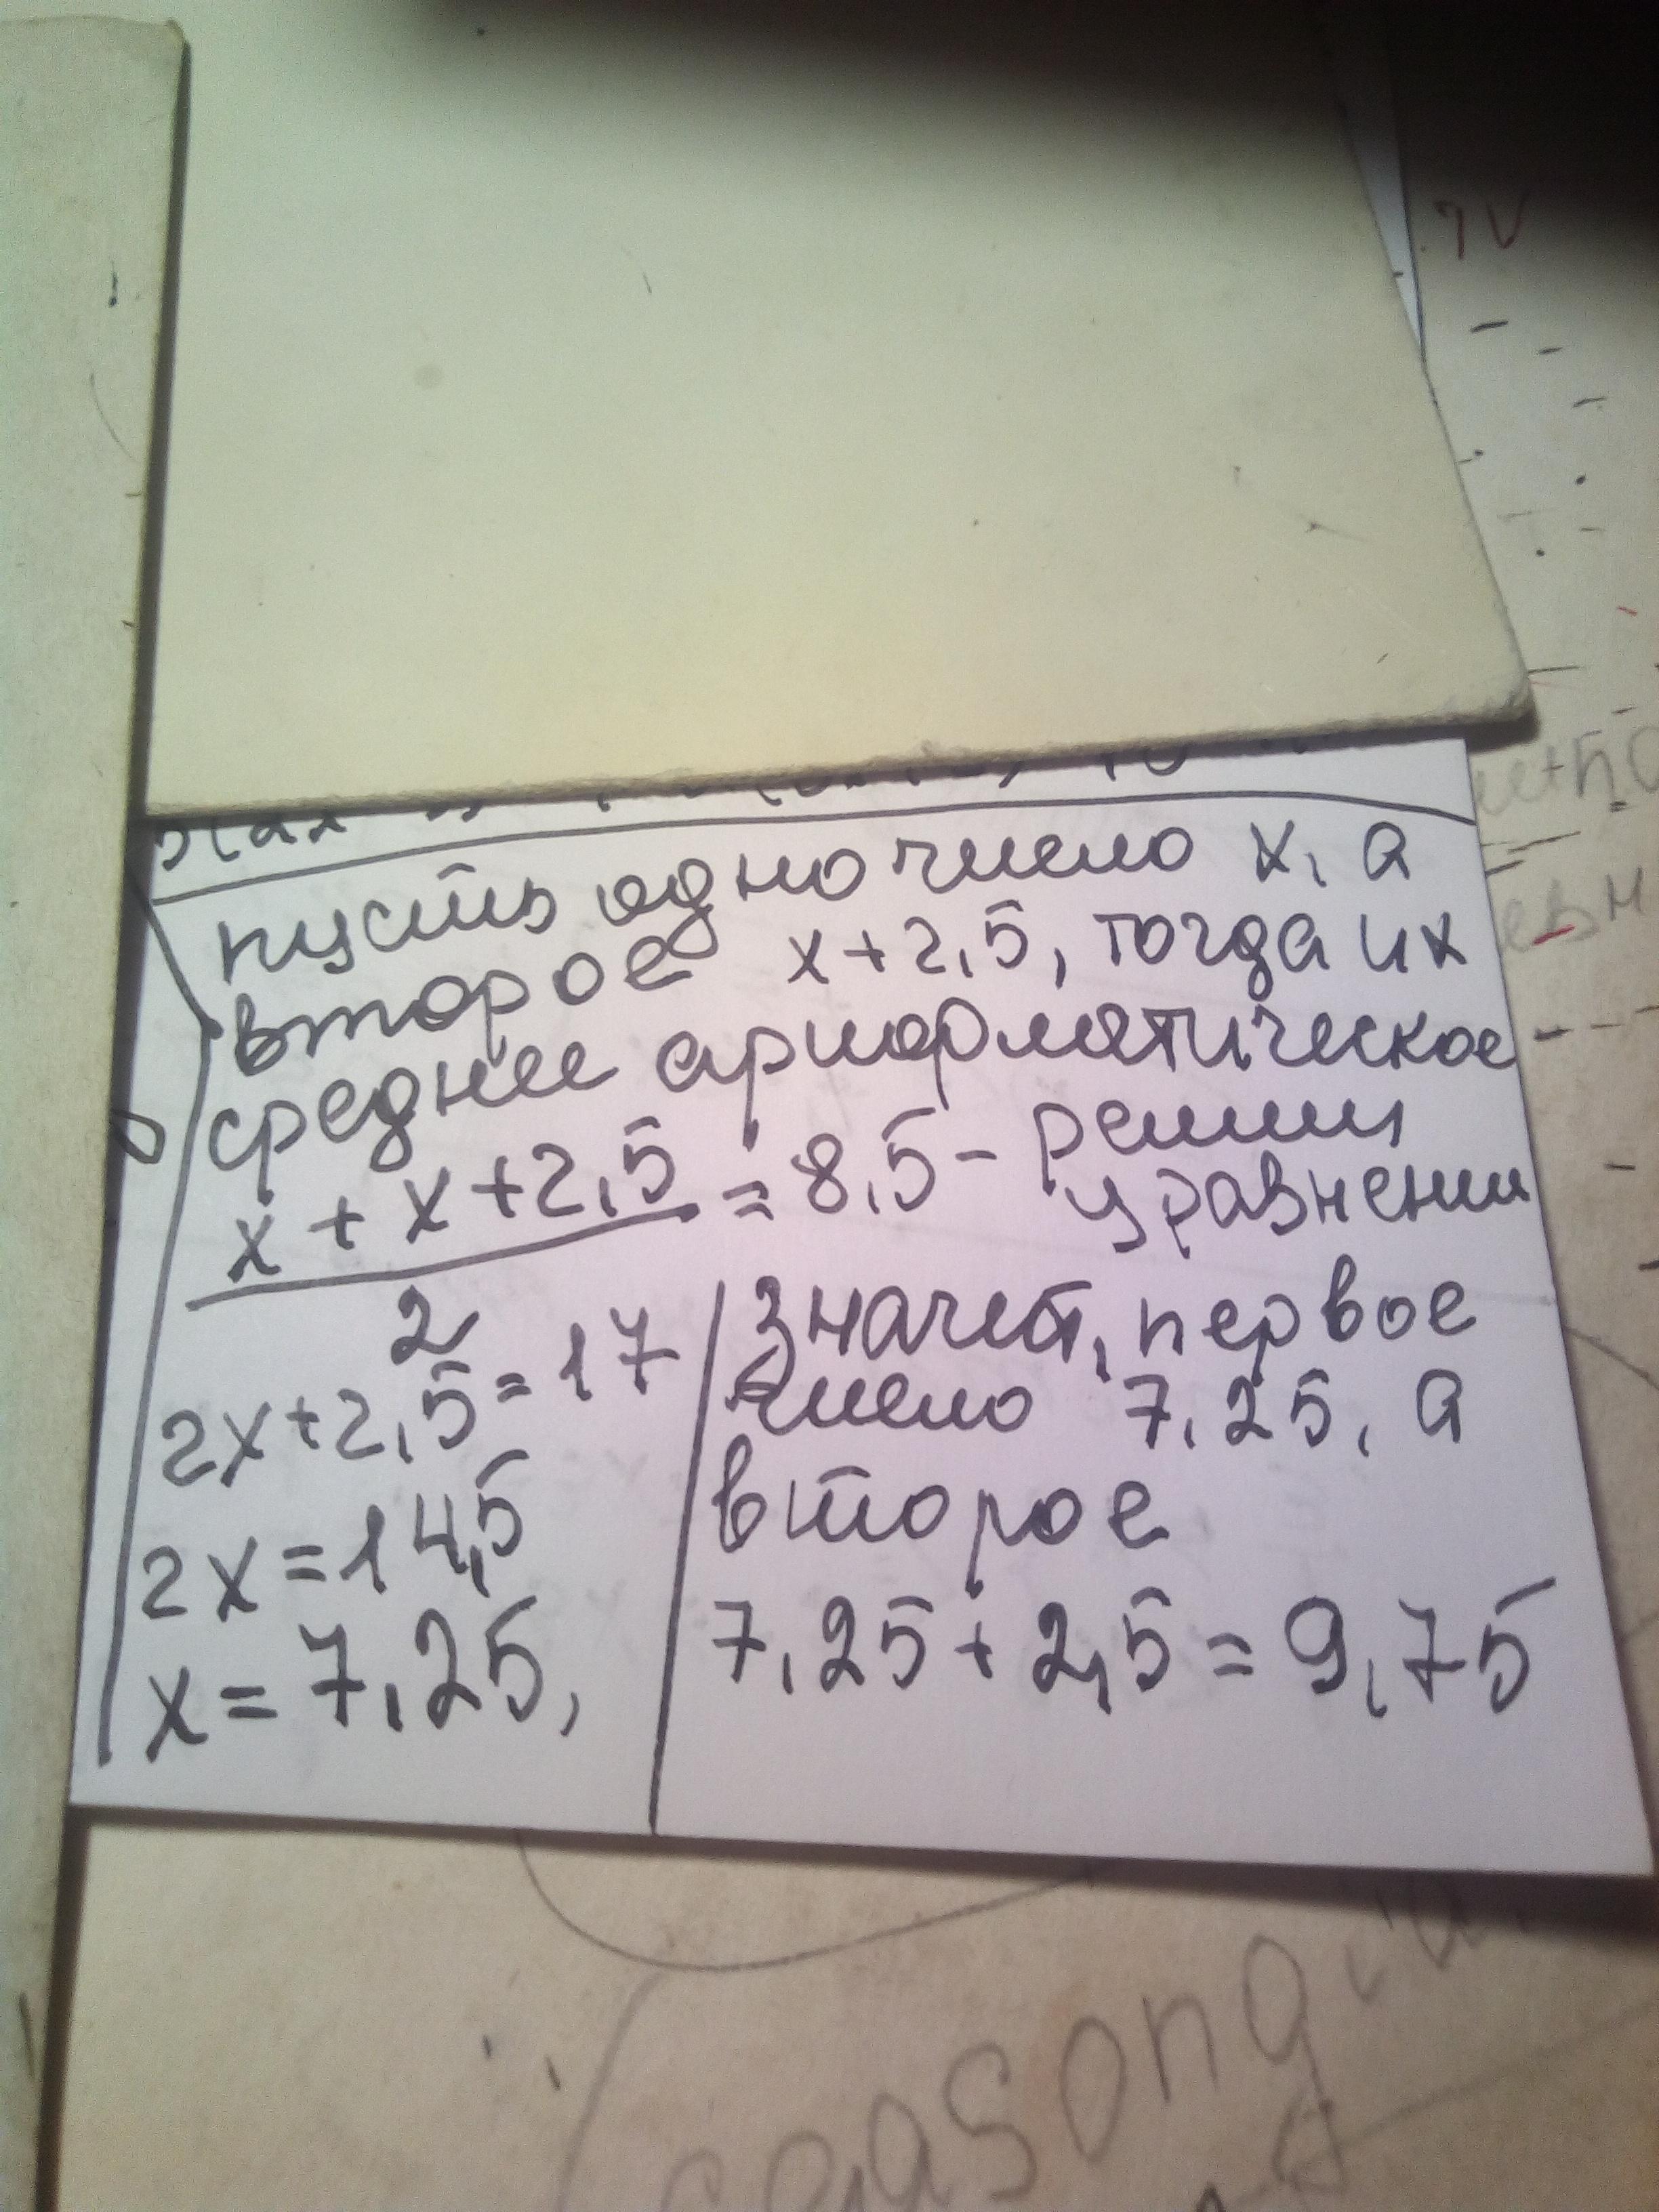 пусть одно число x, а
второе x+2,5, тогда их
среднее ариорматическое
x + x + 2,5 = 8,5 - решим
2
уравнении
2x+2,5=17
2x=14,5
x=7,25,
Значит, первое
число 7,25, а
второе
7,25+2,5=9,75
easong